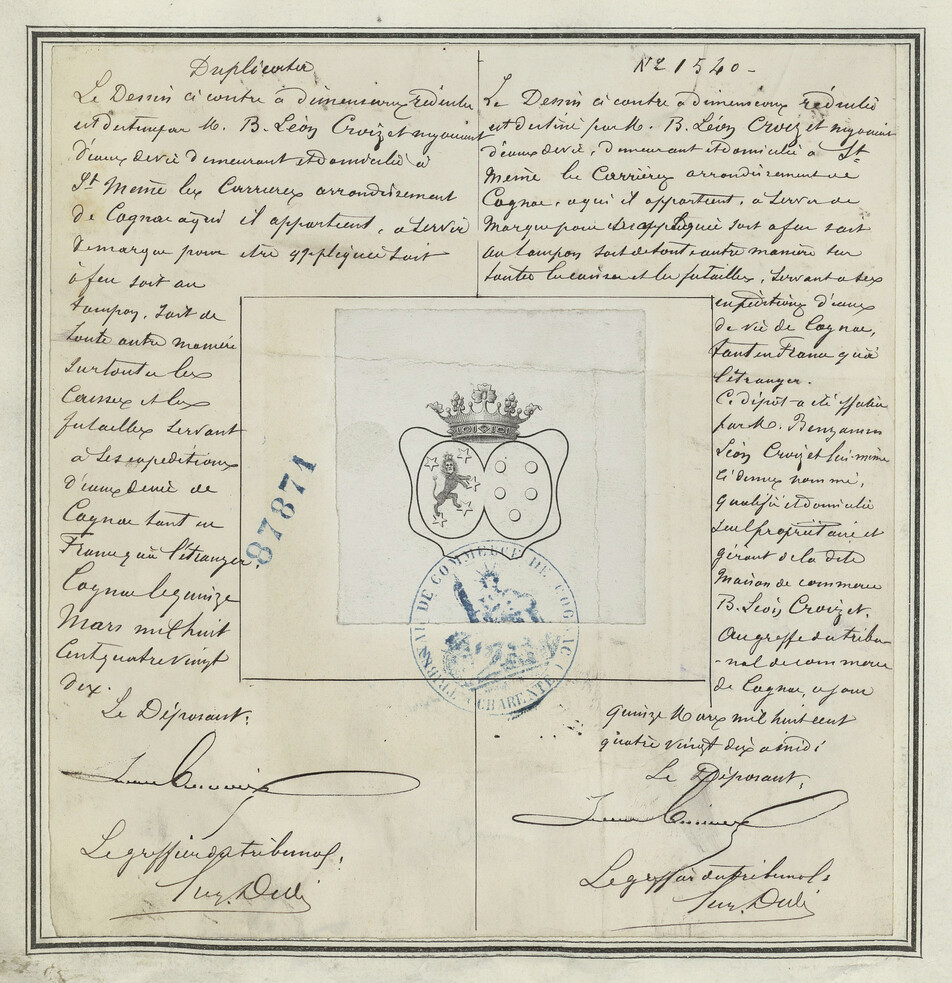 Duplicata
Le Dessin ci contre à dimensions réduites
est destiné par M. B. Léon Croizet négociant
d'eaux de vie demeurant et domicilié à
St Meme les Carrieres arrondissement
de Cognac à qui il appartient, à servir
de marque pour être appliquée soit
à feu soit au
tampon, soit de
toute autre manière
sur toutes les
Caisses et les
futailles servant
à ses expeditions
d'eaux de vie de
Cognac tant en
France qu'à l'étranger
Cognac le quinze
Mars mil huit
Cent quatre vingt
dix.
Le Déposant:
Le greffier du tribunal,
No 1540 -
Le Dessin ci contre à dimensions réduites
est destiné par M. B. Léon Croizet négociant
d'eaux de vie, demeurant et domicilié à St
Meme les Carrières arrondissement de
Cognac, à qui il appartient, à servir de
Marque pour être appliquée soit à feu soit
au tampon soit de toute autre manière sur
toutes les caisses et les futailles, servant à ses
expéditions d'eaux
de vie de Cognac,
tant en France qu'à
l'étranger.
Ce dépôt a été effectué
par M. Benjamin
Léon Croizet lui-même
ci dessus nommé,
qualifié et domicilié
seul propriétaire et
gérant de la dite
Maison de commerce
B. Léon Croizet,
Au greffe du tribu-
-nal de commerce
de Cognac, ce jour
quinze Mars mil huit cent
quatre vingt dix à midi
Le Déposant,
Le greffier du tribunal,
87871
TRIBUNAL DE COMMERCE DE COGNAC (CHARENTE)